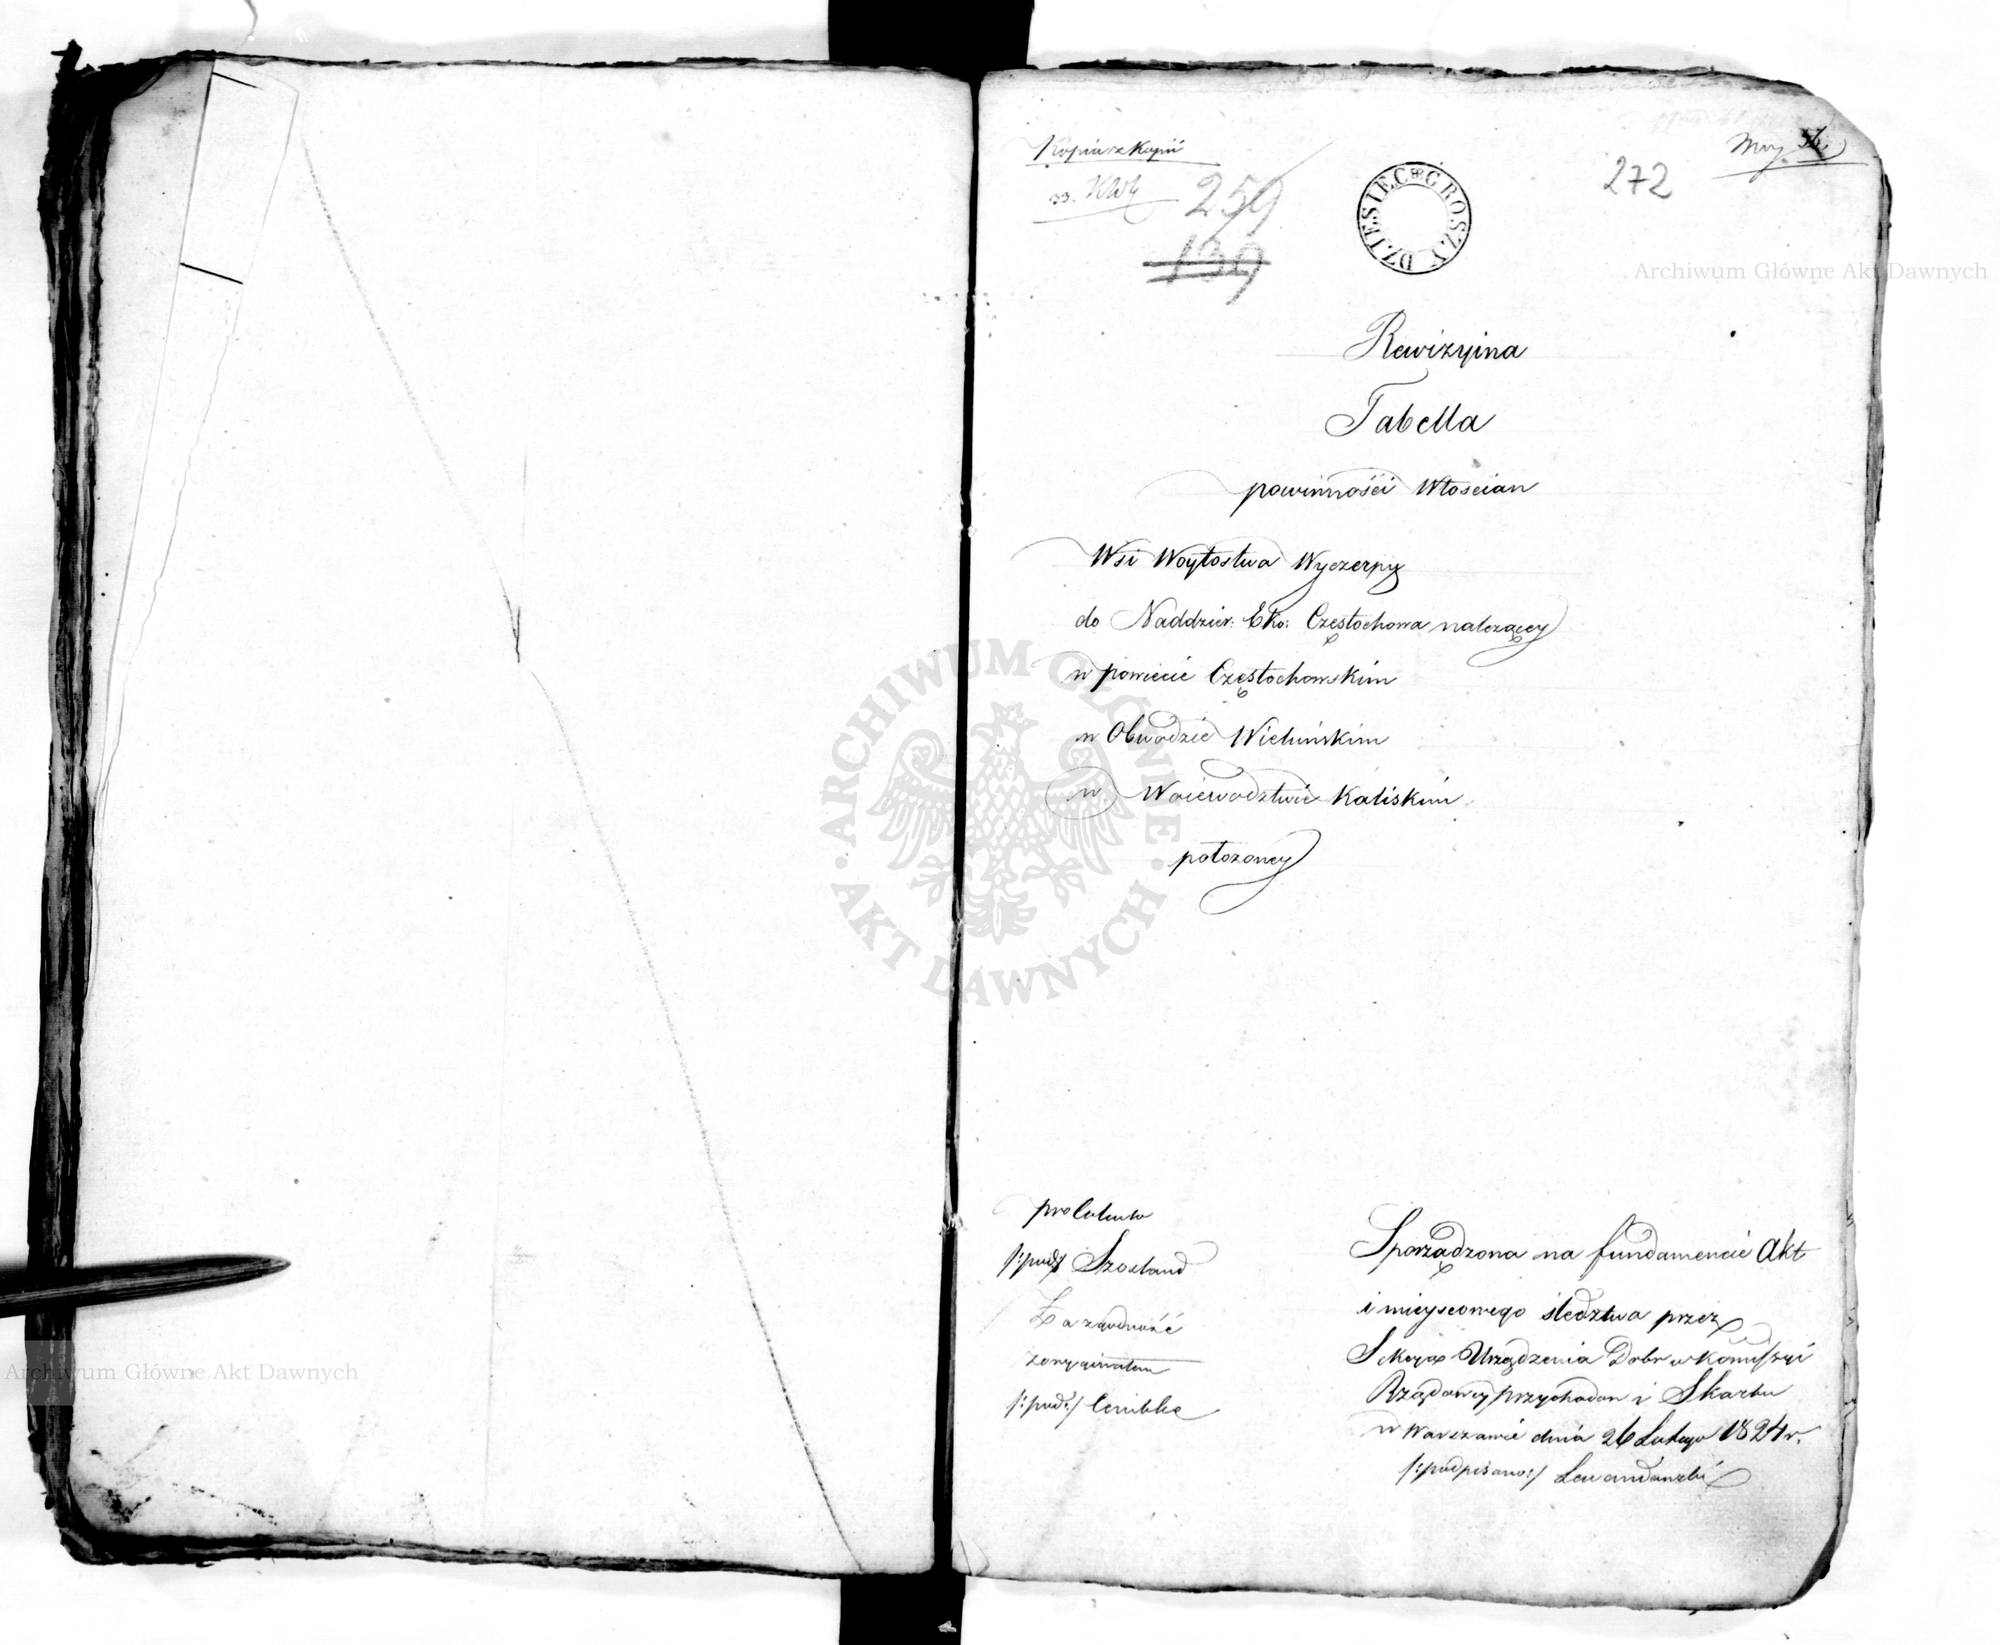 Kopia z Kopii
259
139
DZIESIEC GROSZY
272
Rewizyina
Tabella
powinności Włościan
Wsi Woytostwa Wyczerpy
do Naddzier: Eko: Częstochowa należącey
w powiecie Częstochowskim
w Obwodzie Wieluńskim
w Woiewodztwie Kaliskim
położoney
pro Calculo
/:pod:/ Szosland
Za zgodność
z oryginałem
/:pod:/ Cembke
Sporządzona na fundamencie Akt
i mieyscowego śledztwa przez
Sekcyą Urządzenia Dobr w Kommissyi
Rządowey przychodow i Skarbu
w Warszawie dnia 26 Lutego 1824 r.
/:podpisano:/ Lewandowski
Archiwum Główne Akt Dawnych
ARCHIWUM GŁÓWNE AKT DAWNYCH
Archiwum Główne Akt Dawnych